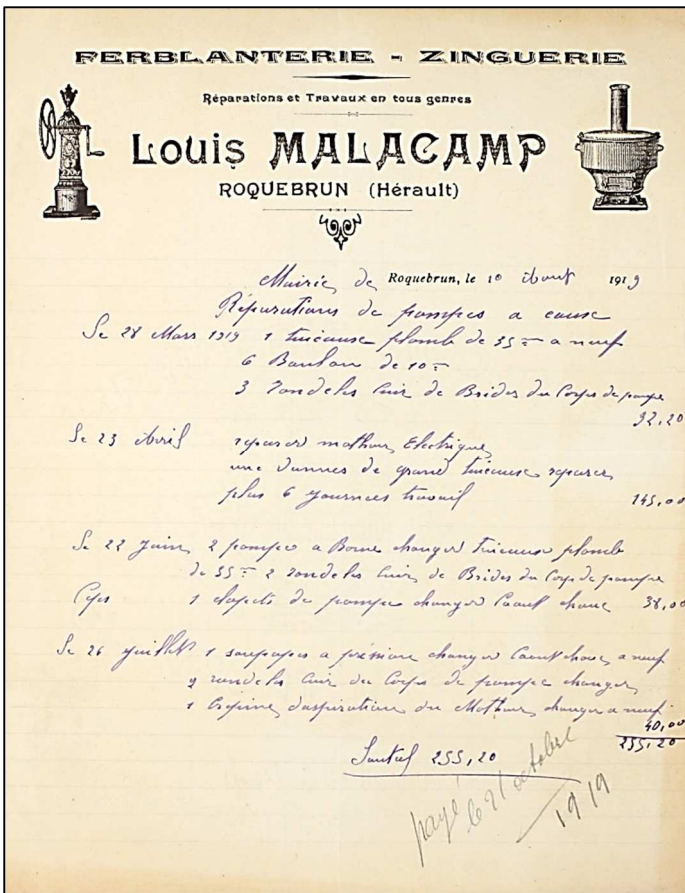 FERBLANTERIE - ZINGUERIE
Réparations et Travaux en tous genres
Louis MALACAMP
ROQUEBRUN (Hérault)
Mairie de Roquebrun, le 10 Aout 1919
Réparations de pompes a
Le 28 Mars 1919 1 plomb de 35 a neuf
6 Boulon de 10
3 rondeles Cuir de Brides du Corps de pompe
32,20
Le 23 Avril Electrique
une Vannes de grand
plus 6 journees travail 145,00
Le 22 Juin 2 pompes a Borne changer plomb
de 35 2 rondeles Cuir de Brides du Corps de pompe
1 clapets de pompe changer Caoutchouc 38,00
Le 26 Juillet 1 soupapes a pression changer Caoutchouc a neuf
2 rondeles Cuir du Corps de pompe changer
1 Crepine d'aspiration du changer a neuf
40,00
255,20
255,20
payé
le 21 octobre
1919